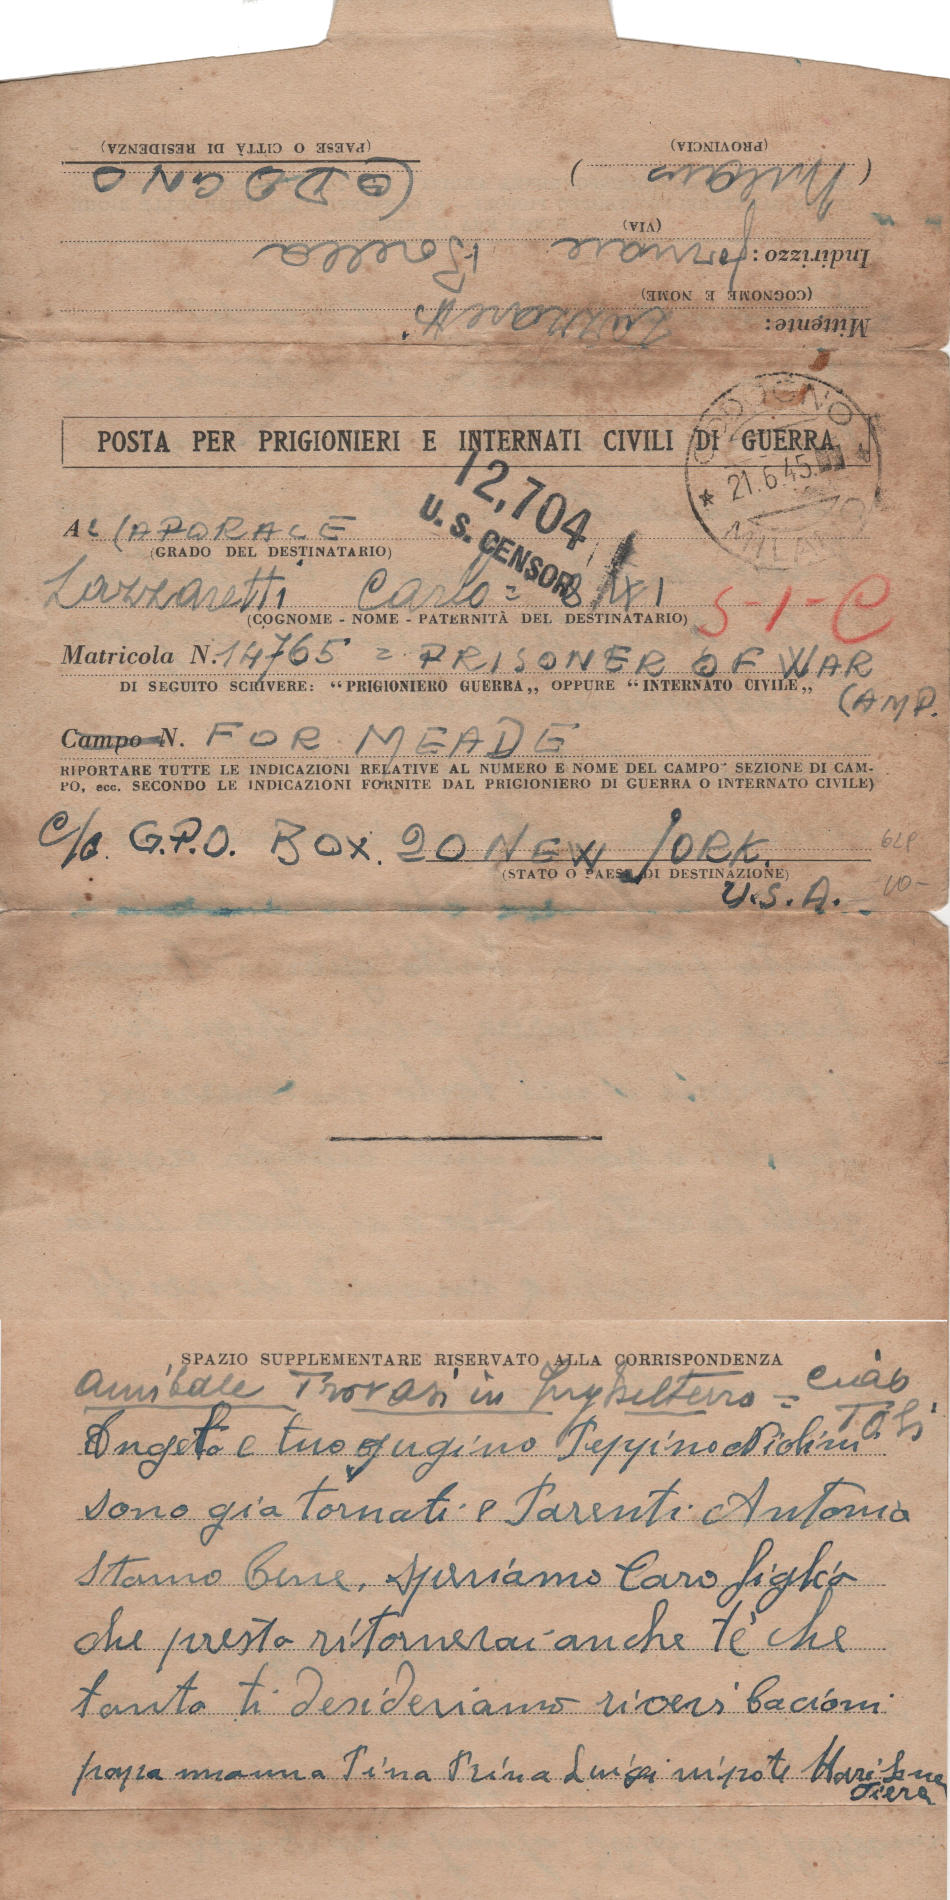 (PAESE O CITTÀ DI RESIDENZA)
(PROVINCIA)
CODOGNO
(Milano)
(VIA)
Indirizzo: Borella
(COGNOME E NOME)
Mittente: Lazzaretti
POSTA PER PRIGIONIERI E INTERNATI CIVILI DI GUERRA
CODOGNO
* 21.6.45
MILANO
12,704
U. S. CENSOR
AL CAPORALE
(GRADO DEL DESTINATARIO)
Lazzaretti Carlo =
(COGNOME - NOME - PATERNITÀ DEL DESTINATARIO)
5-1-C
Matricola N. 14765 = PRISONER OF WAR
DI SEGUITO SCRIVERE: “PRIGIONIERO GUERRA„ OPPURE “INTERNATO CIVILE„
(AMP.
Campo N. FOR MEADE
RIPORTARE TUTTE LE INDICAZIONI RELATIVE AL NUMERO E NOME DEL CAMPO SEZIONE DI CAM-
PO, ecc. SECONDO LE INDICAZIONI FORNITE DAL PRIGIONIERO DI GUERRA O INTERNATO CIVILE)
G.P.O. BOX. 20 NEW JORK.
(STATO O PAESE DI DESTINAZIONE)
U.S.A.
SPAZIO SUPPLEMENTARE RISERVATO ALLA CORRISPONDENZA
Annibale Trovasi in Inghilterra = ciao
Angelo e tuo gugino Peppino
sono gia tornati e Parenti Antonia
stanno bene, speriamo Caro figlio
che presto ritornerai anche tè che
tanto ti desideriamo ricevi bacioni
papa mamma Pina Luigi nipote